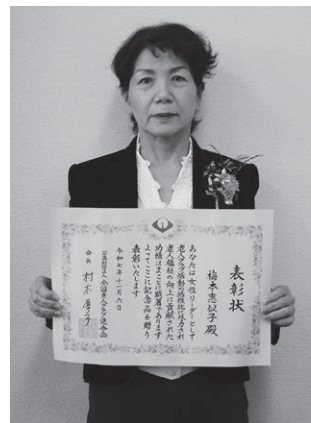 表彰状
梅本恵似子殿
あなたは女性リーダーとして
老人クラブ活動の活性化に尽力され
老人福祉の向上に貢献された
功績はまことに顕著であります
よってここに記念品を贈り
表彰いたします
令和七年十一月六日
公益財団法人 全国老人クラブ連合会
会長 村木厚子